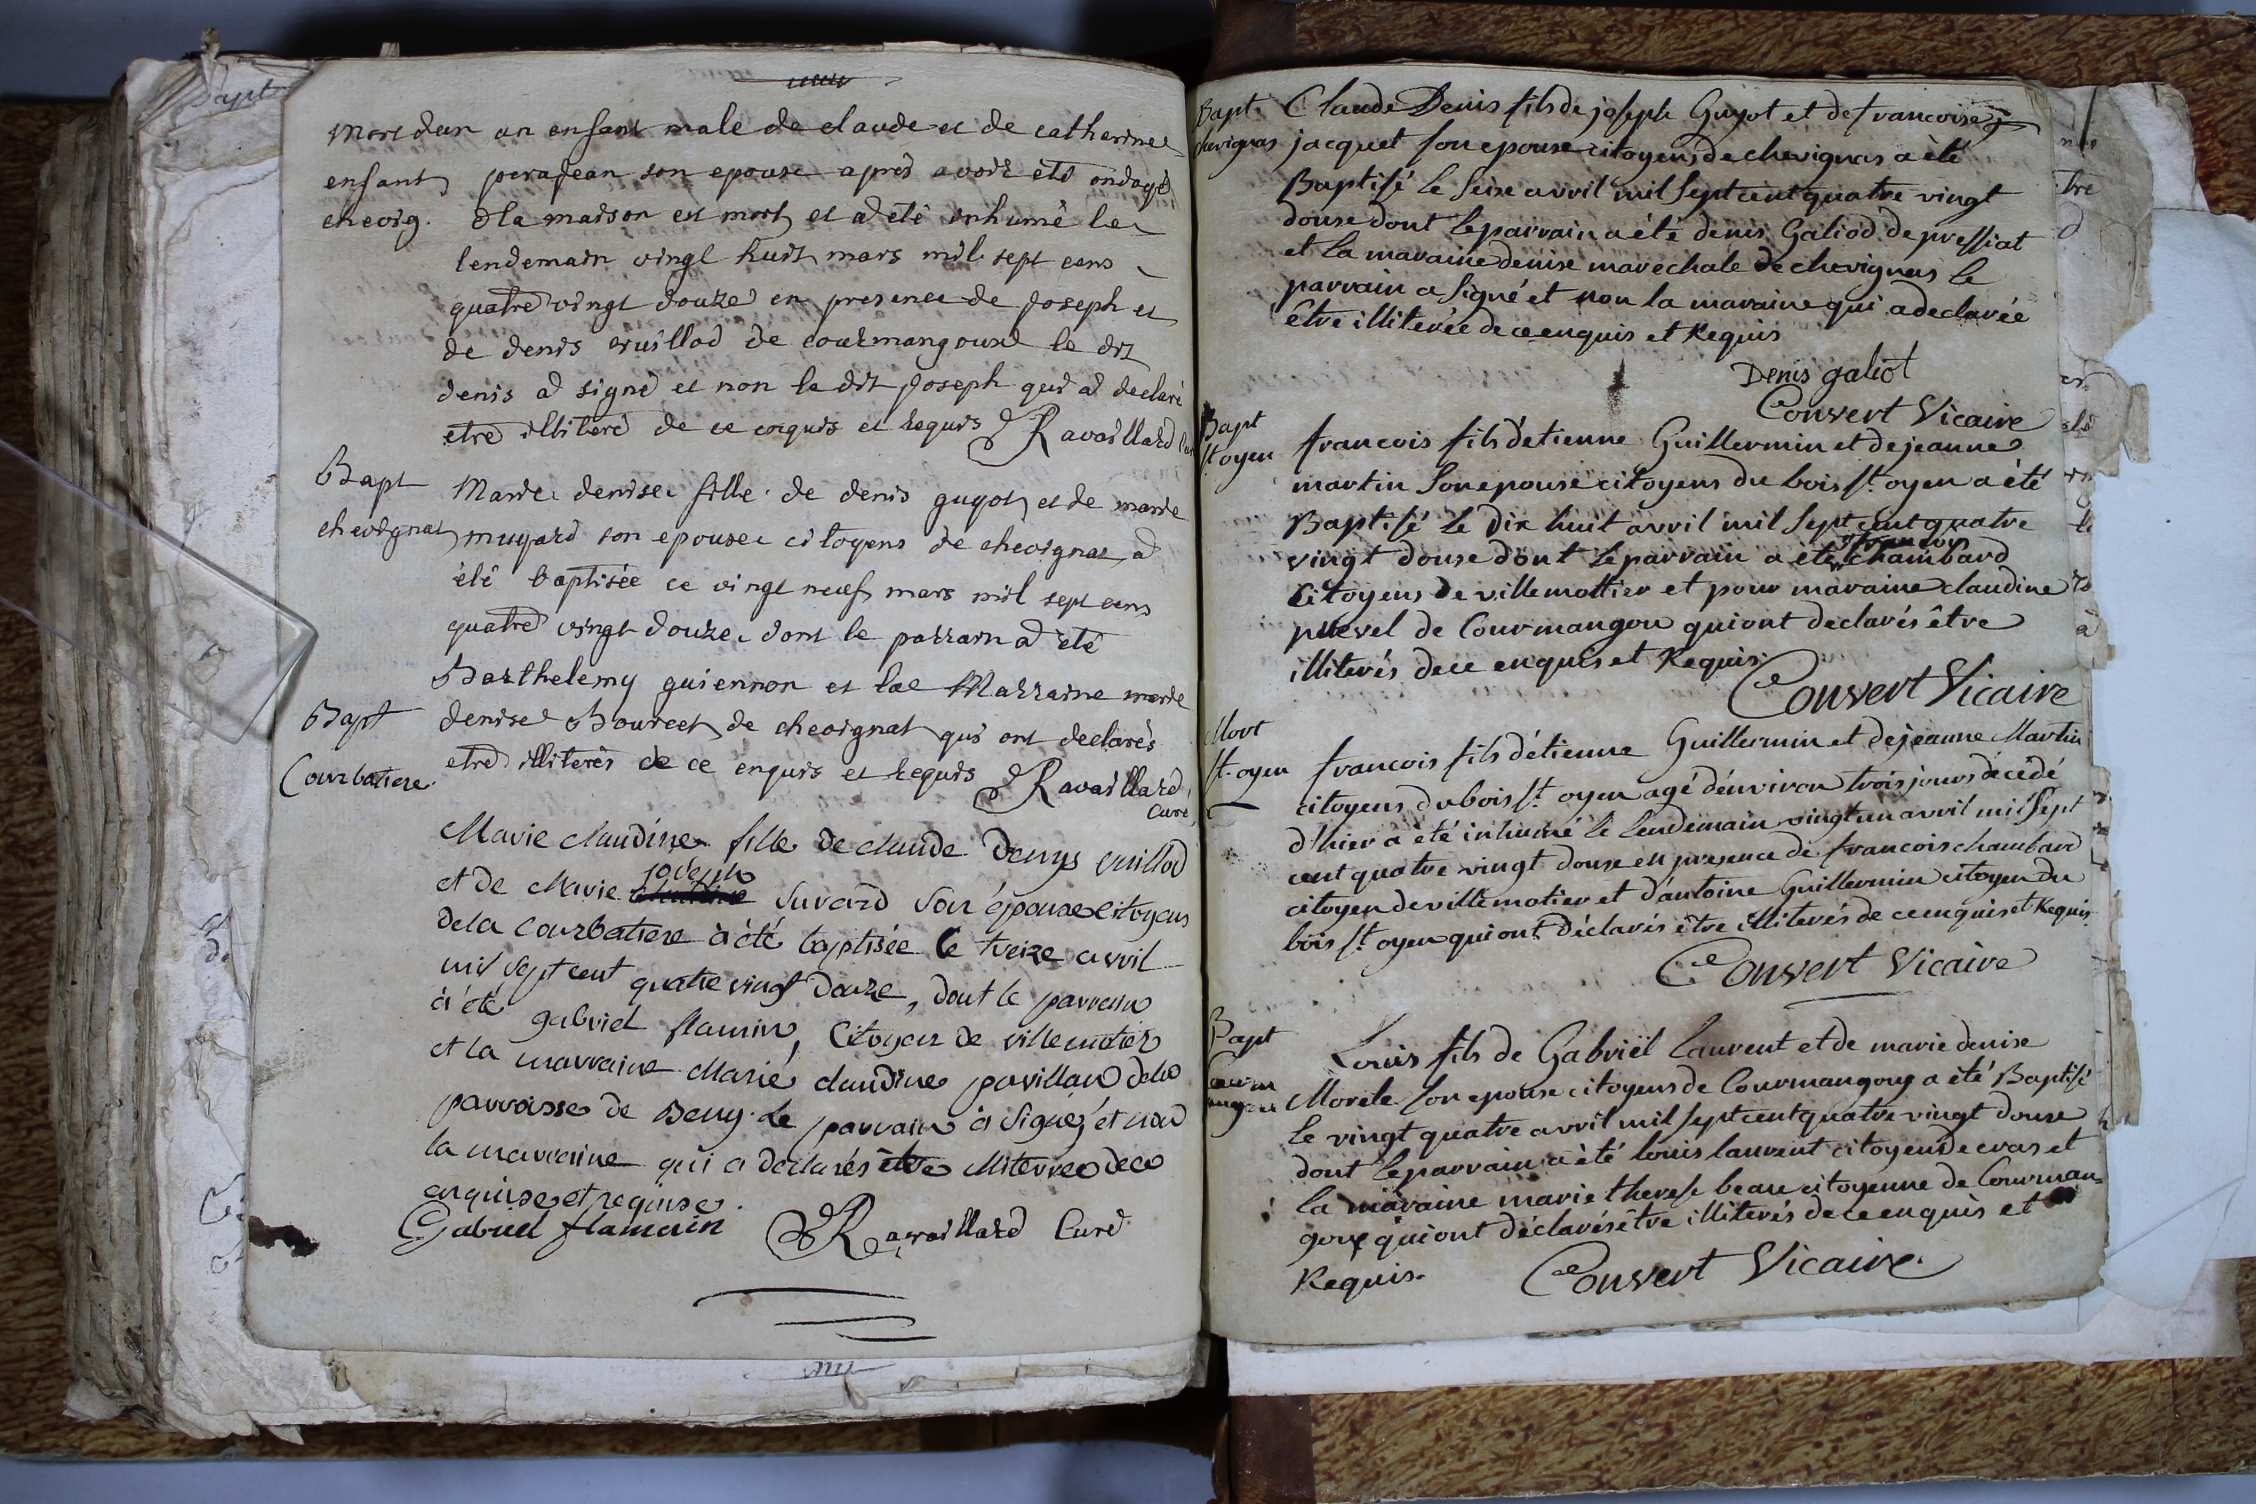 Mort dun un enfant male de claude et de catherine
enfant perajean son epouse après avoir eté ondoyé
chevig. à la maison est mort et a été inhumé le
lendemain vingt huit mars mil sept cens
quatre vingt douze en presence de joseph et
de denis vuillod de courmangoux le dit
denis a signé et non le dit joseph qui a declaré
etre illiteré de ce enquis et requis Ravaillard
Bapt
chevignat
Marie denise fille de denis guyot et de marie
mugard son epouse citoyens de chevignat a
été baptisée ce vingt neuf mars mil sept cens
quatre vingt douze dont le parrain a été
Barthelemy guiennon et la Marraine marie
denise Bourcet de chevignat qui ont declarés
etre illiterés de ce enquis et requis Ravaillard
curé
Bapt
Courbatiere
Marie claudine fille de claude Denys vuillod
et de Marie joseph Suvard Son épouse citoyens
de la Courbatiere à été baptisée le treize avril
mil sept cent quatre vingt douze, dont le parrain
à été gabriel flamin, Citoyen de villemotier
et la marraine Marie claudine pavillon de la
parroisse de Beny. Le parrain à signé, et non
la marraine qui a declarés être illiterree de ce
enquise et requise.
Gabriel flamain Ravaillard Curé
Bapt
chevignas
Claude Denis fils de joseph Guyot et de francoise
jacquet son epouse citoyens de chevignas a été
Baptisé le seise avril mil sept cent quatre vingt
douse dont le parrain a été denis Galiod de pressiat
et la maraine denise marechale de chevignas le
parrain a signé et non la maraine qui a declarée
être illiterée de ce enquis et Requis
Denis galiot
Convert Vicaire
Bapt
St oyen
francois fils d'etienne Guillermin et de jeanne
martin son epouse citoyens du bois st. oyen a été
Baptisé le dix huit avril mil sept cent quatre
vingt douse dont le parrain a été francois chambard
citoyens de villemottier et pour maraine claudine
puvel de Courmangou qui ont declarés être
illiterés de ce enquis et Requis
Convert Vicaire
Mort
st. oyen
francois fils d'étienne Guillermin et de jeanne Martin
citoyens du bois st. oyen agé d'environ trois jours décédé
d'hier a été inhumé le lendemain vingt un avril mil sept
cent quatre vingt douse en presence de francois chambard
citoyen de villemotier et d'antoine Guillermin citoyen du
bois st. oyen qui ont déclarés être illiterés de ce enquis et Requis
Convert Vicaire
Bapt
Louis fils de Gabriël Laurent et de marie denise
Morele son epouse citoyens de Courmangoux a été Baptisé
le vingt quatre avril mil sept cent quatre vingt douse
dont le parrain a été louis laurent citoyen de cras et
la maraine marie therese beau citoyenne de Courman-
goux qui ont déclarés être illiterés de ce enquis et
Requis.
Convert Vicaire.